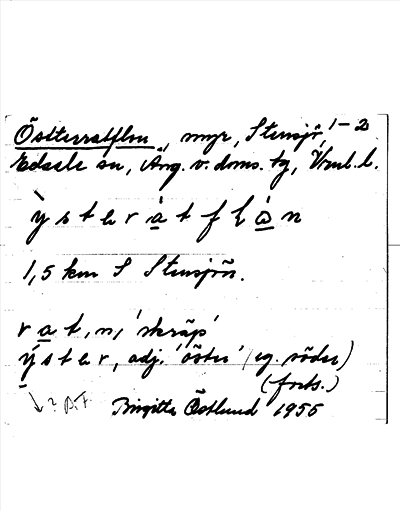 Östterratflon, myr, Stensjö, 1-2
Edsele sn, Äng. v. doms. bg, Vnl. l.
ỳ s t e r à t f l ò n
1,5 km S Stensjön.
r a t, n, 'skräp'
ý s t e r, adj. 'öster' (eg. söder)
(forts.)
↓? B.F. Birgitta Östlund 1955